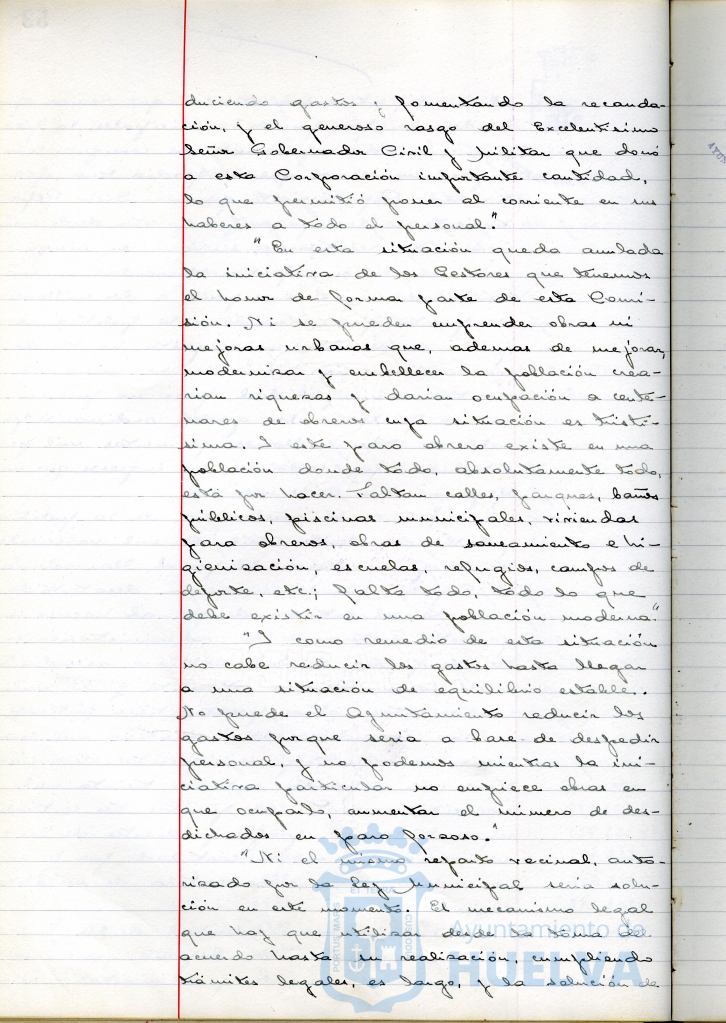 duciendo gastos y fomentando la recauda-
ción, y el generoso rasgo del Excelentísimo
Señor Gobernador Civil y Militar que donó
a esta Corporación importante cantidad,
lo que permitió poner al corriente en sus
haberes a todo el personal."
"En esta situación queda anulada
la iniciativa de los Gestores que tenemos
el honor de formar parte de esta Comi-
sión. Ni se pueden emprender obras ni
mejoras urbanas que, ademas de mejorar,
modernizar y embellecer la población crea-
rian riquezas y darian ocupación a cente-
nares de obreros cuya situación es tristi-
sima. I este paro obrero existe en una
población donde todo, absolutamente todo,
está por hacer. Faltan calles, parques, baños
públicos, piscinas municipales, viviendas
para obreros, obras de saneamiento e hi-
gienización, escuelas, refugios, campos de
deporte, etc.; falta todo, todo lo que
debe existir en una población moderna."
"I como remedio de esta situación
no cabe reducir los gastos hasta llegar
a una situación de equilibrio estable.
No puede el Ayuntamiento reducir los
gastos porque seria a base de despedir
personal, y no podemos mientras la ini-
ciativa particular no empiece obras en
que ocuparlo, aumentar el número de des-
dichados en paro forzoso."
"Ni el mismo reparto vecinal, auto-
rizado por la Ley Municipal seria solu-
ción en este momento. El mecanismo legal
que hay que utilizar desde la toma de
acuerdo hasta su realización, cumpliendo
trámites legales, es largo, y la solución de
Ayuntamiento de
HUELVA